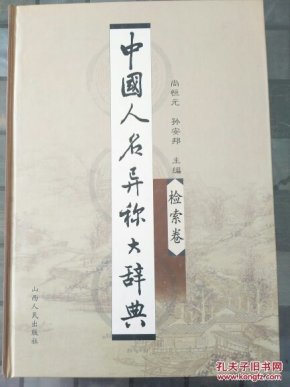 中國人名异称大辞典
尚恒元 孙安邦 主编
检索卷
山西人民出版社
孔夫子旧书网